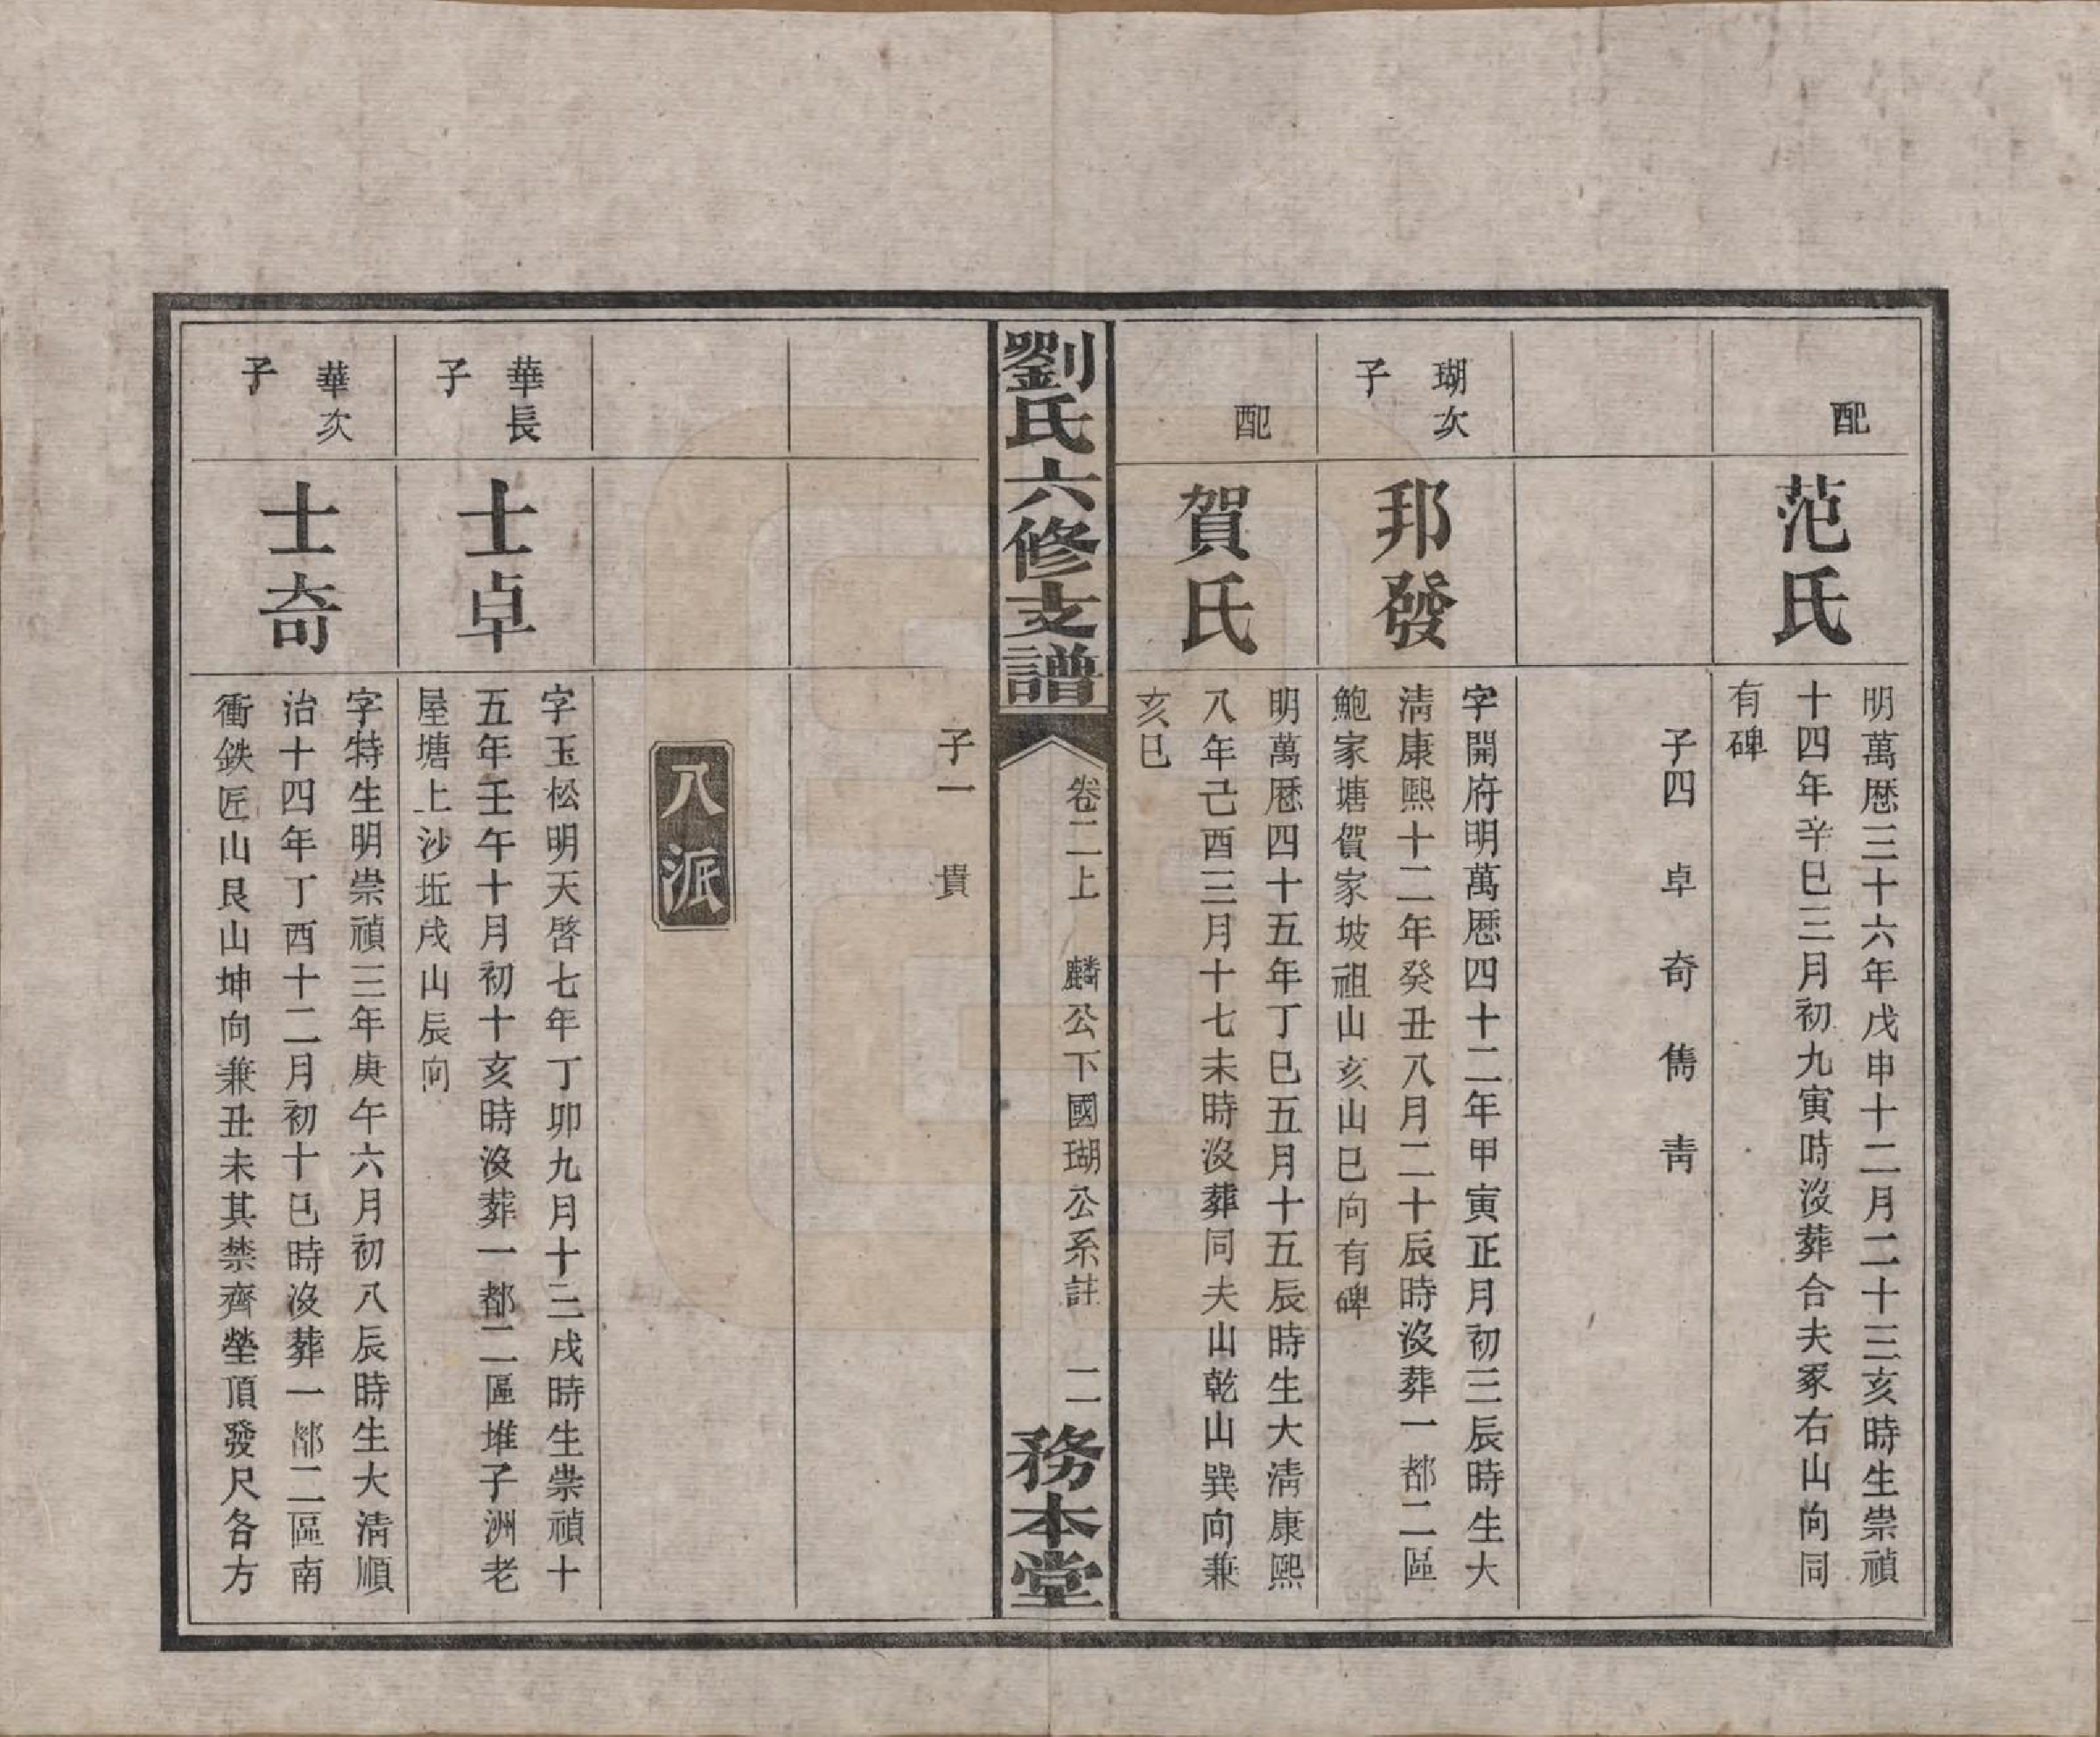 配
范氏
明萬厯三十六年戊申十二月二十三亥時生崇禎
十四年辛巳三月初九寅時沒葬合夫冢右山向同
有碑
子四　卓　奇　儁　靑
瑚次
子
邦發
字開府明萬厯四十二年甲寅正月初三辰時生大
淸康熙十二年癸丑八月二十辰時沒葬一都二區
鮑家塘賀家坡祖山亥山巳向有碑
配
賀氏
明萬厯四十五年丁巳五月十五辰時生大淸康熙
八年己酉三月十七未時沒葬同夫山乾山巽向兼
亥巳
劉氏六修支譜
卷二上　麟公下國瑚公系註　二
務本堂
子一　貴
八派
華長
子
士卓
字玉松明天啓七年丁卯九月十三戌時生崇禎十
五年壬午十月初十亥時沒葬一都二區堆子洲老
屋塘上沙坵戌山辰向
華次
子
士奇
字特生明崇禎三年庚午六月初八辰時生大淸順
治十四年丁酉十二月初十巳時沒葬一都二區南
衝鉄匠山艮山坤向兼丑未其禁齊塋頂發尺各方